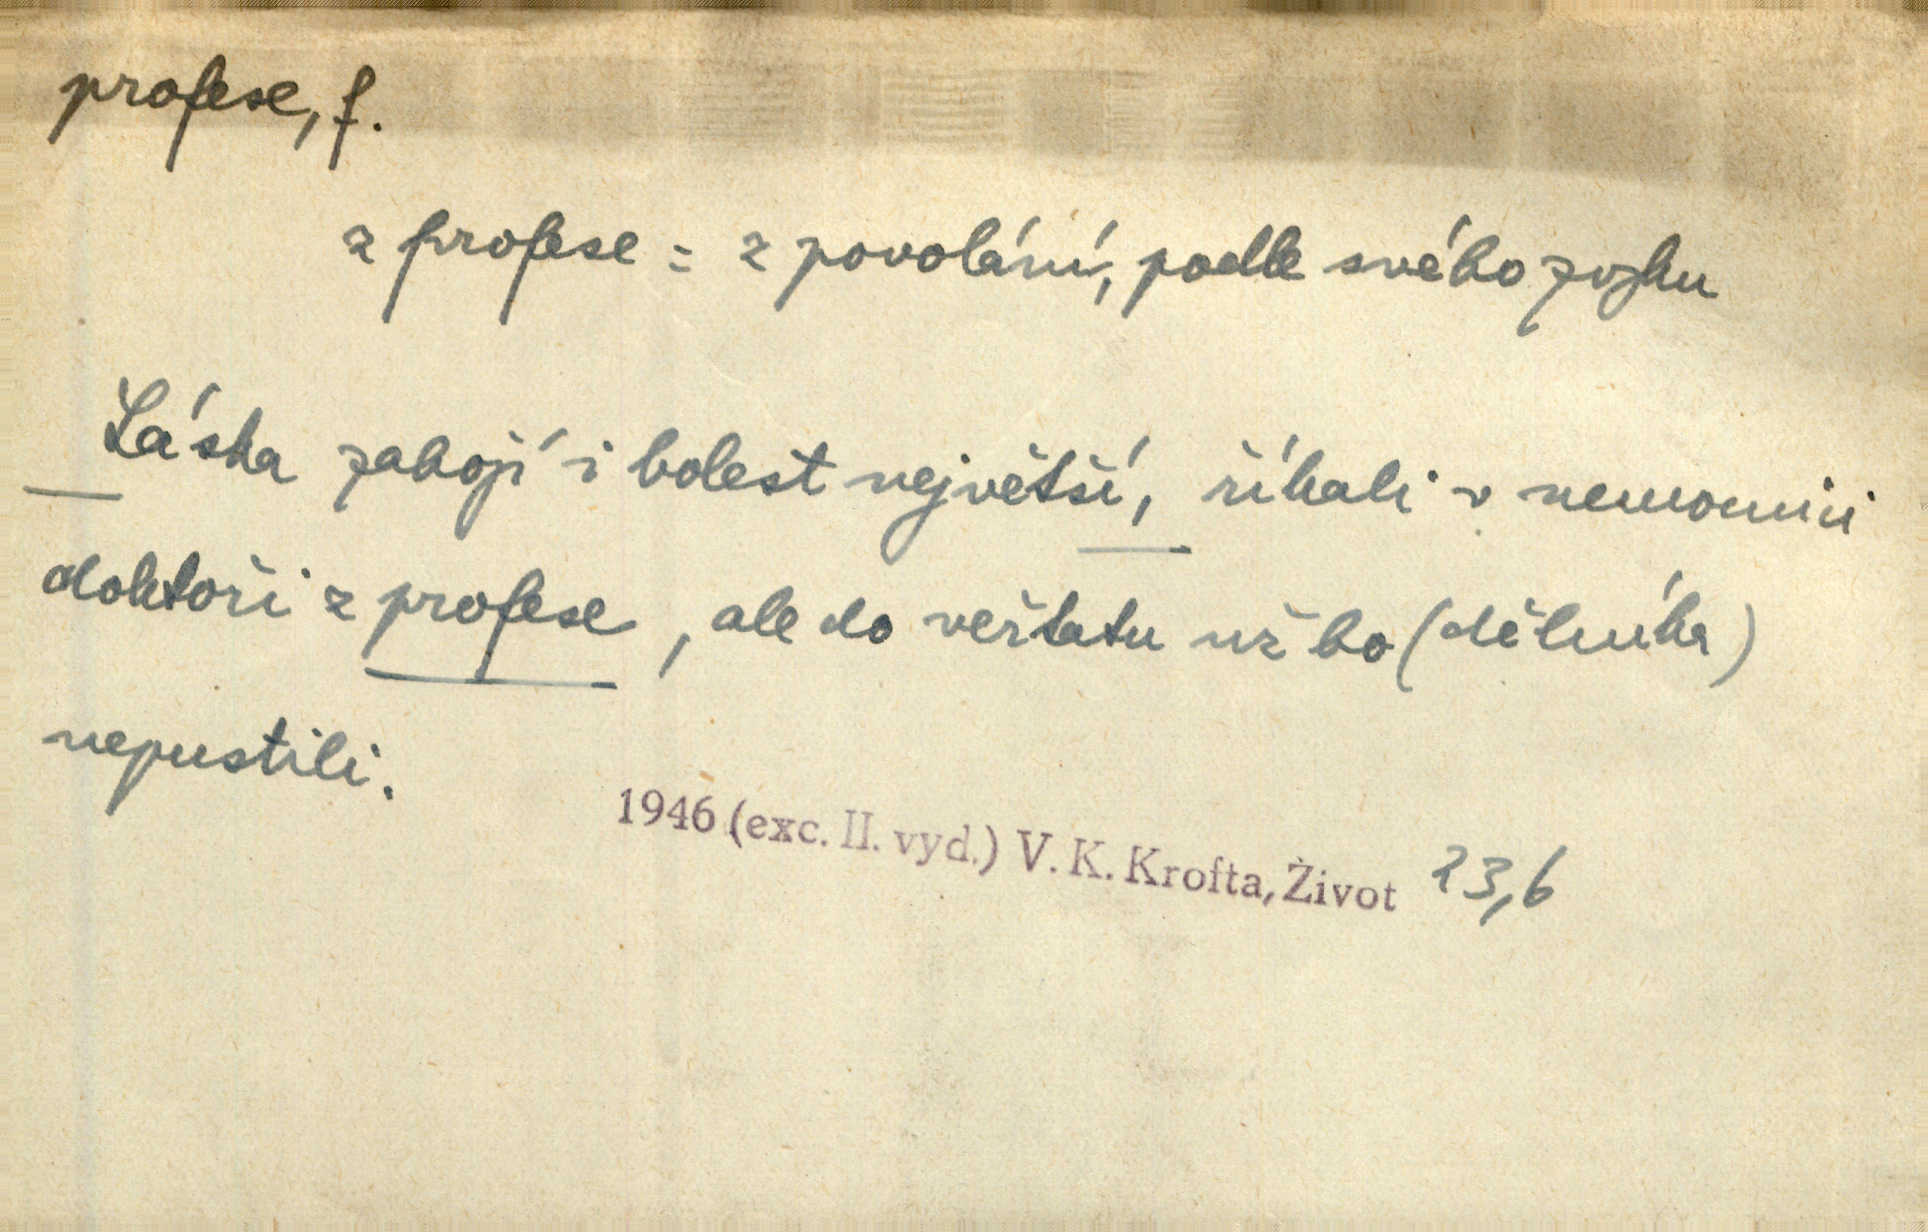 profese, f.
z profese = z povolání, podle svého zvyku
Láska zahojí i bolest největší, říkali v nemocnici
doktoři z profese, ale do verštatu už ho (dělníka)
nepustili.
1946 (exc. II. vyd.) V. K. Krofta, Život 23,6